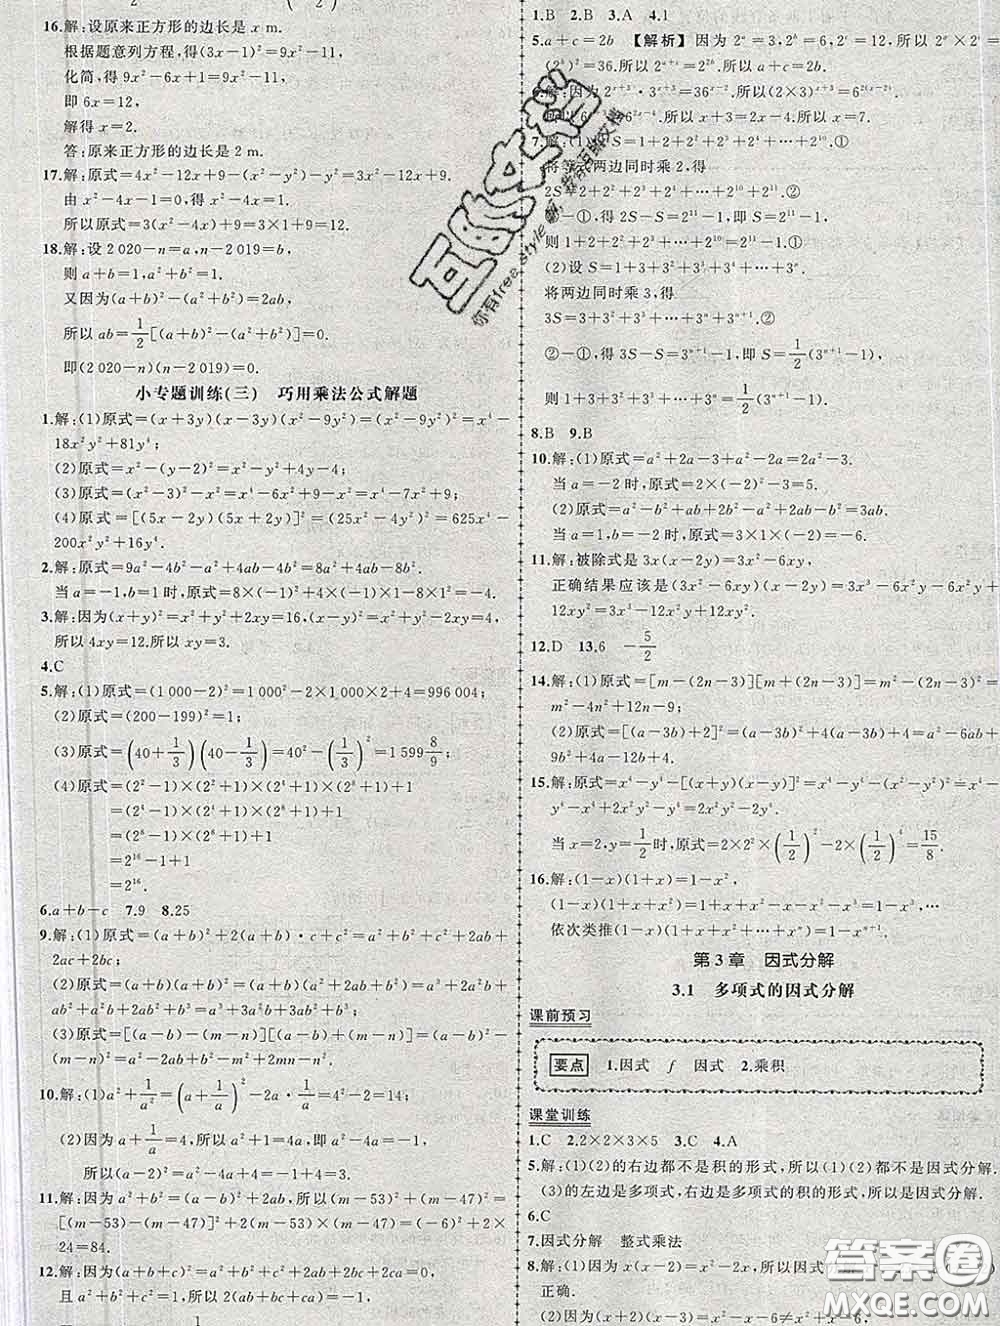 16.解:设原来正方形的边长是 x m.
根据题意列方程,得(3x-1)²=9x²-11,
化简,得 9x²-6x+1=9x²-11,
即 6x=12,
解得 x=2.
答:原来正方形的边长是 2 m.
17.解:原式=4x²-12x+9-(x²-y²)-y²=3x²-12x+9.
由 x²-4x-1=0,得 x²-4x=1.
所以原式=3(x²-4x)+9=3×1+9=12.
18.解:设 2 020-n=a,n-2 019=b,
则 a+b=1,a²+b²=1.
又因为(a+b)²-(a²+b²)=2ab,
所以 ab=1/2[(a+b)²-(a²+b²)]=0.
即(2 020-n)(n-2 019)=0.
小专题训练(三) 巧用乘法公式解题
1.解:(1)原式=(x+3y)(x-3y)(x²-9y²)=(x²-9y²)²=x⁴-
18x²y²+81y⁴;
(2)原式=x²-(y-2)²=x²-y²+4y-4;
(3)原式=(x²-3)²-x²=x⁴-6x²+9-x²=x⁴-7x²+9;
(4)原式=[(5x-2y)(5x+2y)]²=(25x²-4y²)²=625x⁴-
200x²y²+16y⁴.
2.解:原式=9a²-4b²-a²+4ab-4b²=8a²+4ab-8b².
当 a=-1,b=1 时,原式=8×(-1)²+4×(-1)×1-8×1²=-4.
3.解:因为(x+y)²=x²+y²+2xy=16,(x-y)²=x²+y²-2xy=4,
所以 4xy=12.所以 xy=3.
4.C
5.解:(1)原式=(1 000-2)²=1 000²-2×1 000×2+4=996 004;
(2)原式=(200-199)²=1;
(3)原式=(40+1/3)(40-1/3)=40²-(1/3)²=1 599 8/9
(4)原式=(2²-1)×(2²+1)×(2⁴+1)×(2⁸+1)+1
=(2⁴-1)×(2⁴+1)×(2⁸+1)+1
=(2⁸-1)×(2⁸+1)+1
=2¹⁶-1+1
=2¹⁶.
6.a+b-c 7.9 8.25
9.解:(1)原式=(a+b)²+2(a+b)·c+c²=a²+b²+c²+2ab+
2ac+2bc;
(2)原式=(a+b)(a+b)²=(a+b)(a²+2ab+b²)=
a³+3a²b+3ab²+b³;
(3)原式=[(a-b)-(m-n)][(a-b)+(m-n)]=(a-b)²-
(m-n)²=a²-2ab+b²-m²+2mn-n².
10.解:(1)a²+1/a²=(a+1/a)²-2=4²-2=14;
(2)因为 a+1/a=4,所以 a²+1=4a,即 a²-4a=-1,
所以(a-2)²=a²-4a+4=-1+4=3.
11.解:因为 a²+b²=(a-b)²+2ab,所以(m-53)²+(m-47)²=
[(m-53)-(m-47)]²+2(m-53)×(m-47)=(-6)²+2×
24=84.
12.解:因为(a+b+c)²=a²+b²+c²+2ab+2ac+2bc=0,
且 a²+b²+c²=1,所以 1+2(ab+bc+ca)=0.
1.B 2.B 3.A 4.1
5.a+c=2b 【解析】因为 2ᵃ=3,2ᵇ=6,2ᶜ=12,所以 2ᵃ×2ᶜ=
(2ᵇ)²=36.所以 2ᵃ⁺ᶜ=2²ᵇ.所以 a+c=2b.
6.解:因为 2ˣ⁺³·3ˣ⁺³=36ˣ⁻²,所以(2×3)ˣ⁺³=6²⁽ˣ⁻²⁾
所以 6ˣ⁺³=6²⁽ˣ⁻²⁾.所以 x+3=2x-4.所以 x=7.
7.解:(1)设 S=1+2+2²+2³+2⁴+…+2¹⁰.①
将等式两边同时乘 2,得
2S=2+2²+2³+2⁴+…+2¹⁰+2¹¹.②
②-①,得 2S-S=2¹¹-1,即 S=2¹¹-1,
则 1+2+2²+2³+…+2¹⁰=2¹¹-1.①
(2)设 S=1+3+3²+3³+…+3ⁿ.
将两边同时乘 3,得
3S=3+3²+3³+…+3ⁿ+3ⁿ⁺¹.②
②-①,得 3S-S=3ⁿ⁺¹-1,即 S=1/2(3ⁿ⁺¹-1),
则 1+3+3²+3³+…+3ⁿ=1/2(3ⁿ⁺¹-1).
8.B 9.B
10.解:(1)原式=a²+2a-3+a²-2a=2a²-3.
当 a=-2 时,原式=2×(-2)²-3=5.
(2)原式=a²-b²+ab+2b²-a²-b²+2ab=3ab.
当 a=1,b=-2 时,原式=3×1×(-2)=-6.
11.解:被除式是 3x(x-2y)=3x²-6xy,
正确结果应该是(3x²-6xy)(x-2y)=3x³-6x²y-6x²y+
12xy²=3x³-12x²y+12xy².
12.D 13.6 -5/2
14.解:(1)原式=[m-(2n-3)][m+(2n-3)]=m²-(2n-3)²
=m²-4n²+12n-9;
(2)原式=[(a-3b)+2]²=(a-3b)²+4(a-3b)+4=a²-6ab+
9b²+4a-12b+4.
15.解:原式=x⁴-y⁴-[(x+y)(x-y)]²=x⁴-y⁴-(x²-y²)²=x⁴
-y⁴-x⁴+2x²y²-y⁴=2x²y²-2y⁴.
当 x=2,y=1/2时,原式=2×2²×(1/2)²-2×(1/2)⁴=15/8.
16.解:(1-x)(1+x)=1-x²,
(1-x)(1+x+x²)=1+x+x²-x-x²-x³=1-x³,…
依次类推(1-x)(1+x+x²+…+xⁿ)=1-xⁿ⁺¹.
第 3 章 因式分解
3.1 多项式的因式分解
课前预习
要点 1.因式 f 因式 2.乘积
课堂训练
1.C 2.2×2×3×5 3.C 4.A
5.解:(1)(2)的右边都不是积的形式,所以(1)(2)都不是因式分解.
(3)的左边是多项式,右边是多项式的积的形式,所以(3)是因式分解.
6.C
7.因式分解 整式乘法
8.解:(1)因为 x(x-2)=x²-2x,
正确.
(2)因为(x+2)(x-3)=x²-x-6≠x²+x-
互助文档
你有free style,我有互助文档
答案圈
MXQE.COM